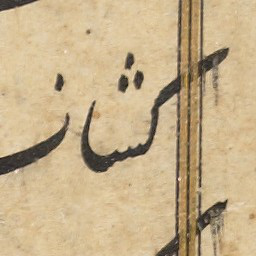 کشان